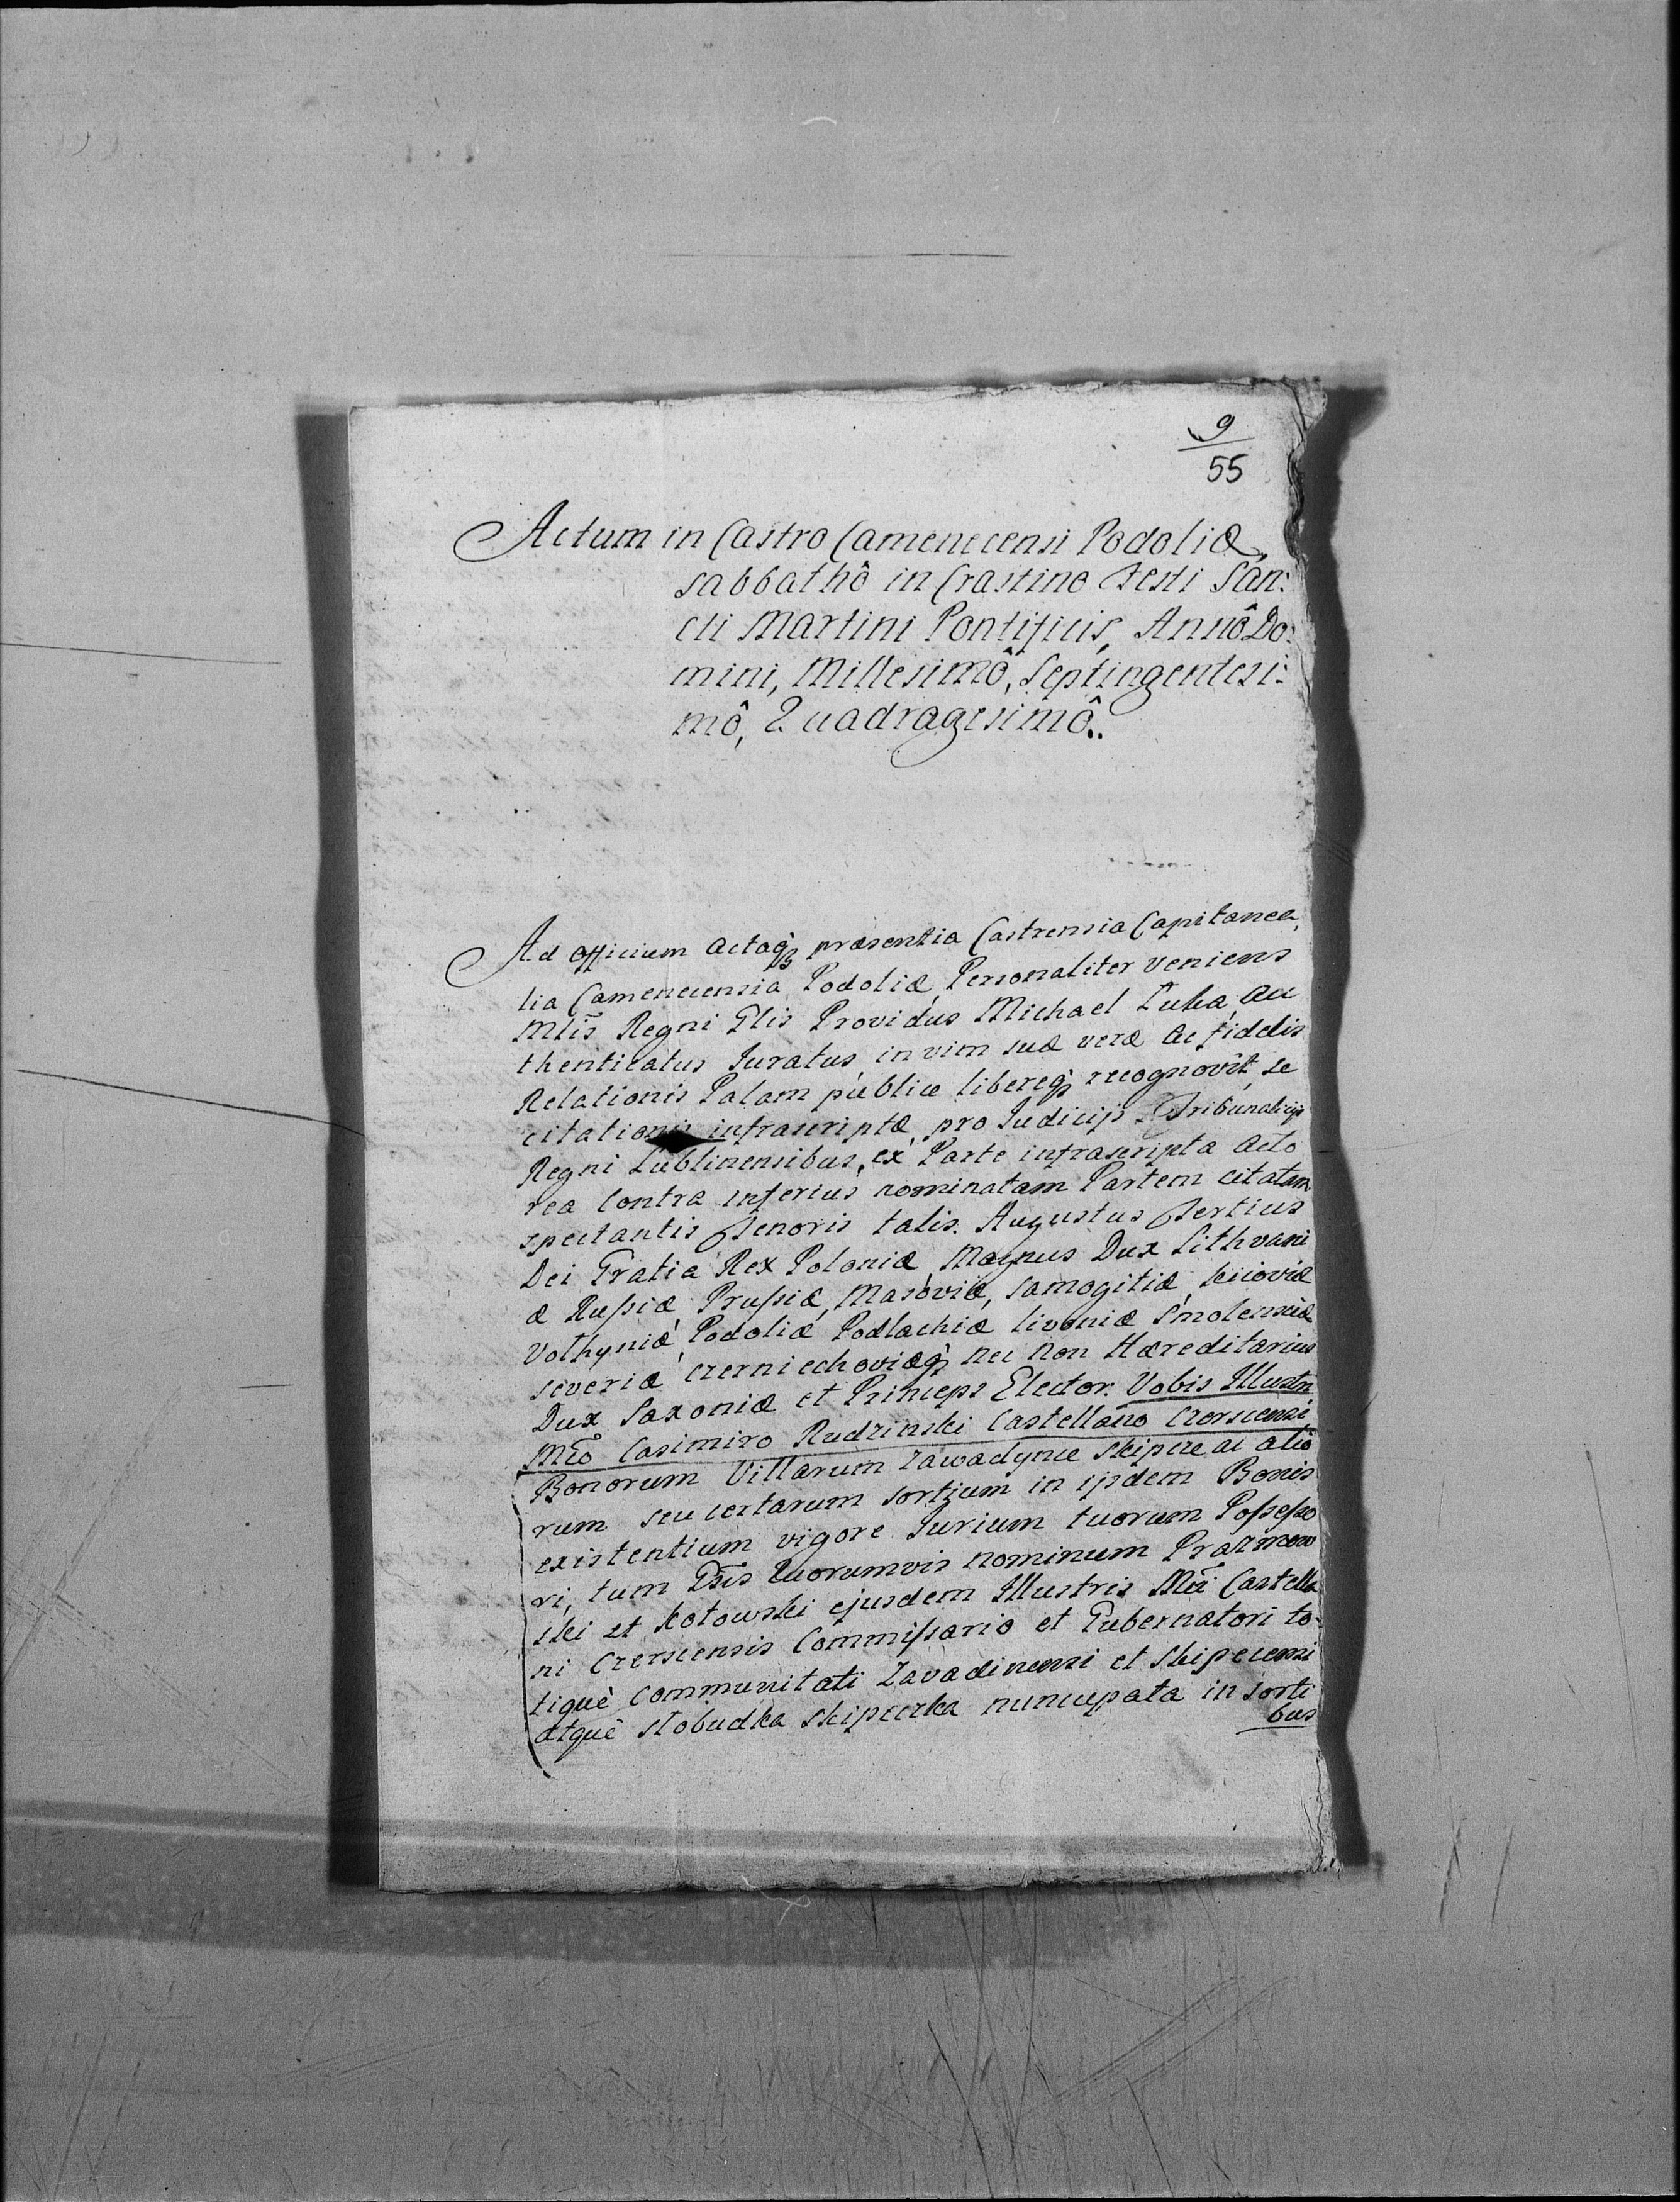 9
55
Actum in Castro Camenecensi Podoliæ,
sabbathô in Crastino Festi San:
cti Martini Pontificis, Annô Do:
mini, Millesimô, Septingentesi:
mô, Quadragesimô..
Ad Officium Actaqꝫ præsentia Castrensia Capitanea,
lia Camenecensia Podoliæ, Personaliter veniens
Mtis Regni Glis Providus Michael Luka, Au
thenticatus Juratus, in vim suæ veræ ac fidelis
Relationis Palam publice libereqꝫ recognovit, se
citationis infrascriptæ, pro Judicijs Tribunalicijs
Regni Lublinensibus, ex Parte infrascripta Acto
rea Contra inferius nominatam Partem citatam
spectantis Tenoris talis. Augustus Tertius
Dei Gratia Rex Poloniæ, Magnus Dux Lithvani
æ Rußiæ Prußiæ, Masoviæ, Samogitiæ, Kijoviæ
Volhyniæ, Podoliæ Podlachiæ Livoniæ Smolensciæ
Severiæ Czerniechoviæqꝫ nec non Hæreditarius
Dux Saxoniæ et Princeps Elector. Vobis Illustri
Mco Casimiro Rudzinski Castellano Czerscensi
Bonorum Villarum Zawadynce Skipcze ac alio
rum seu certarum sortium in ijsdem Bonis
existentium vigore Jurium tuorum Poßeßo
ri, tum Gsis Quorumvis nominum Prazmow
ski et Kotowski ejusdem Illustris Mci Castella
ni Czerscensis Commißario et Gubernatori to
tique Communitati Zavadinensi et Skipcensi
atque Slobudka Skipeczka nuncupata in sorti
bus